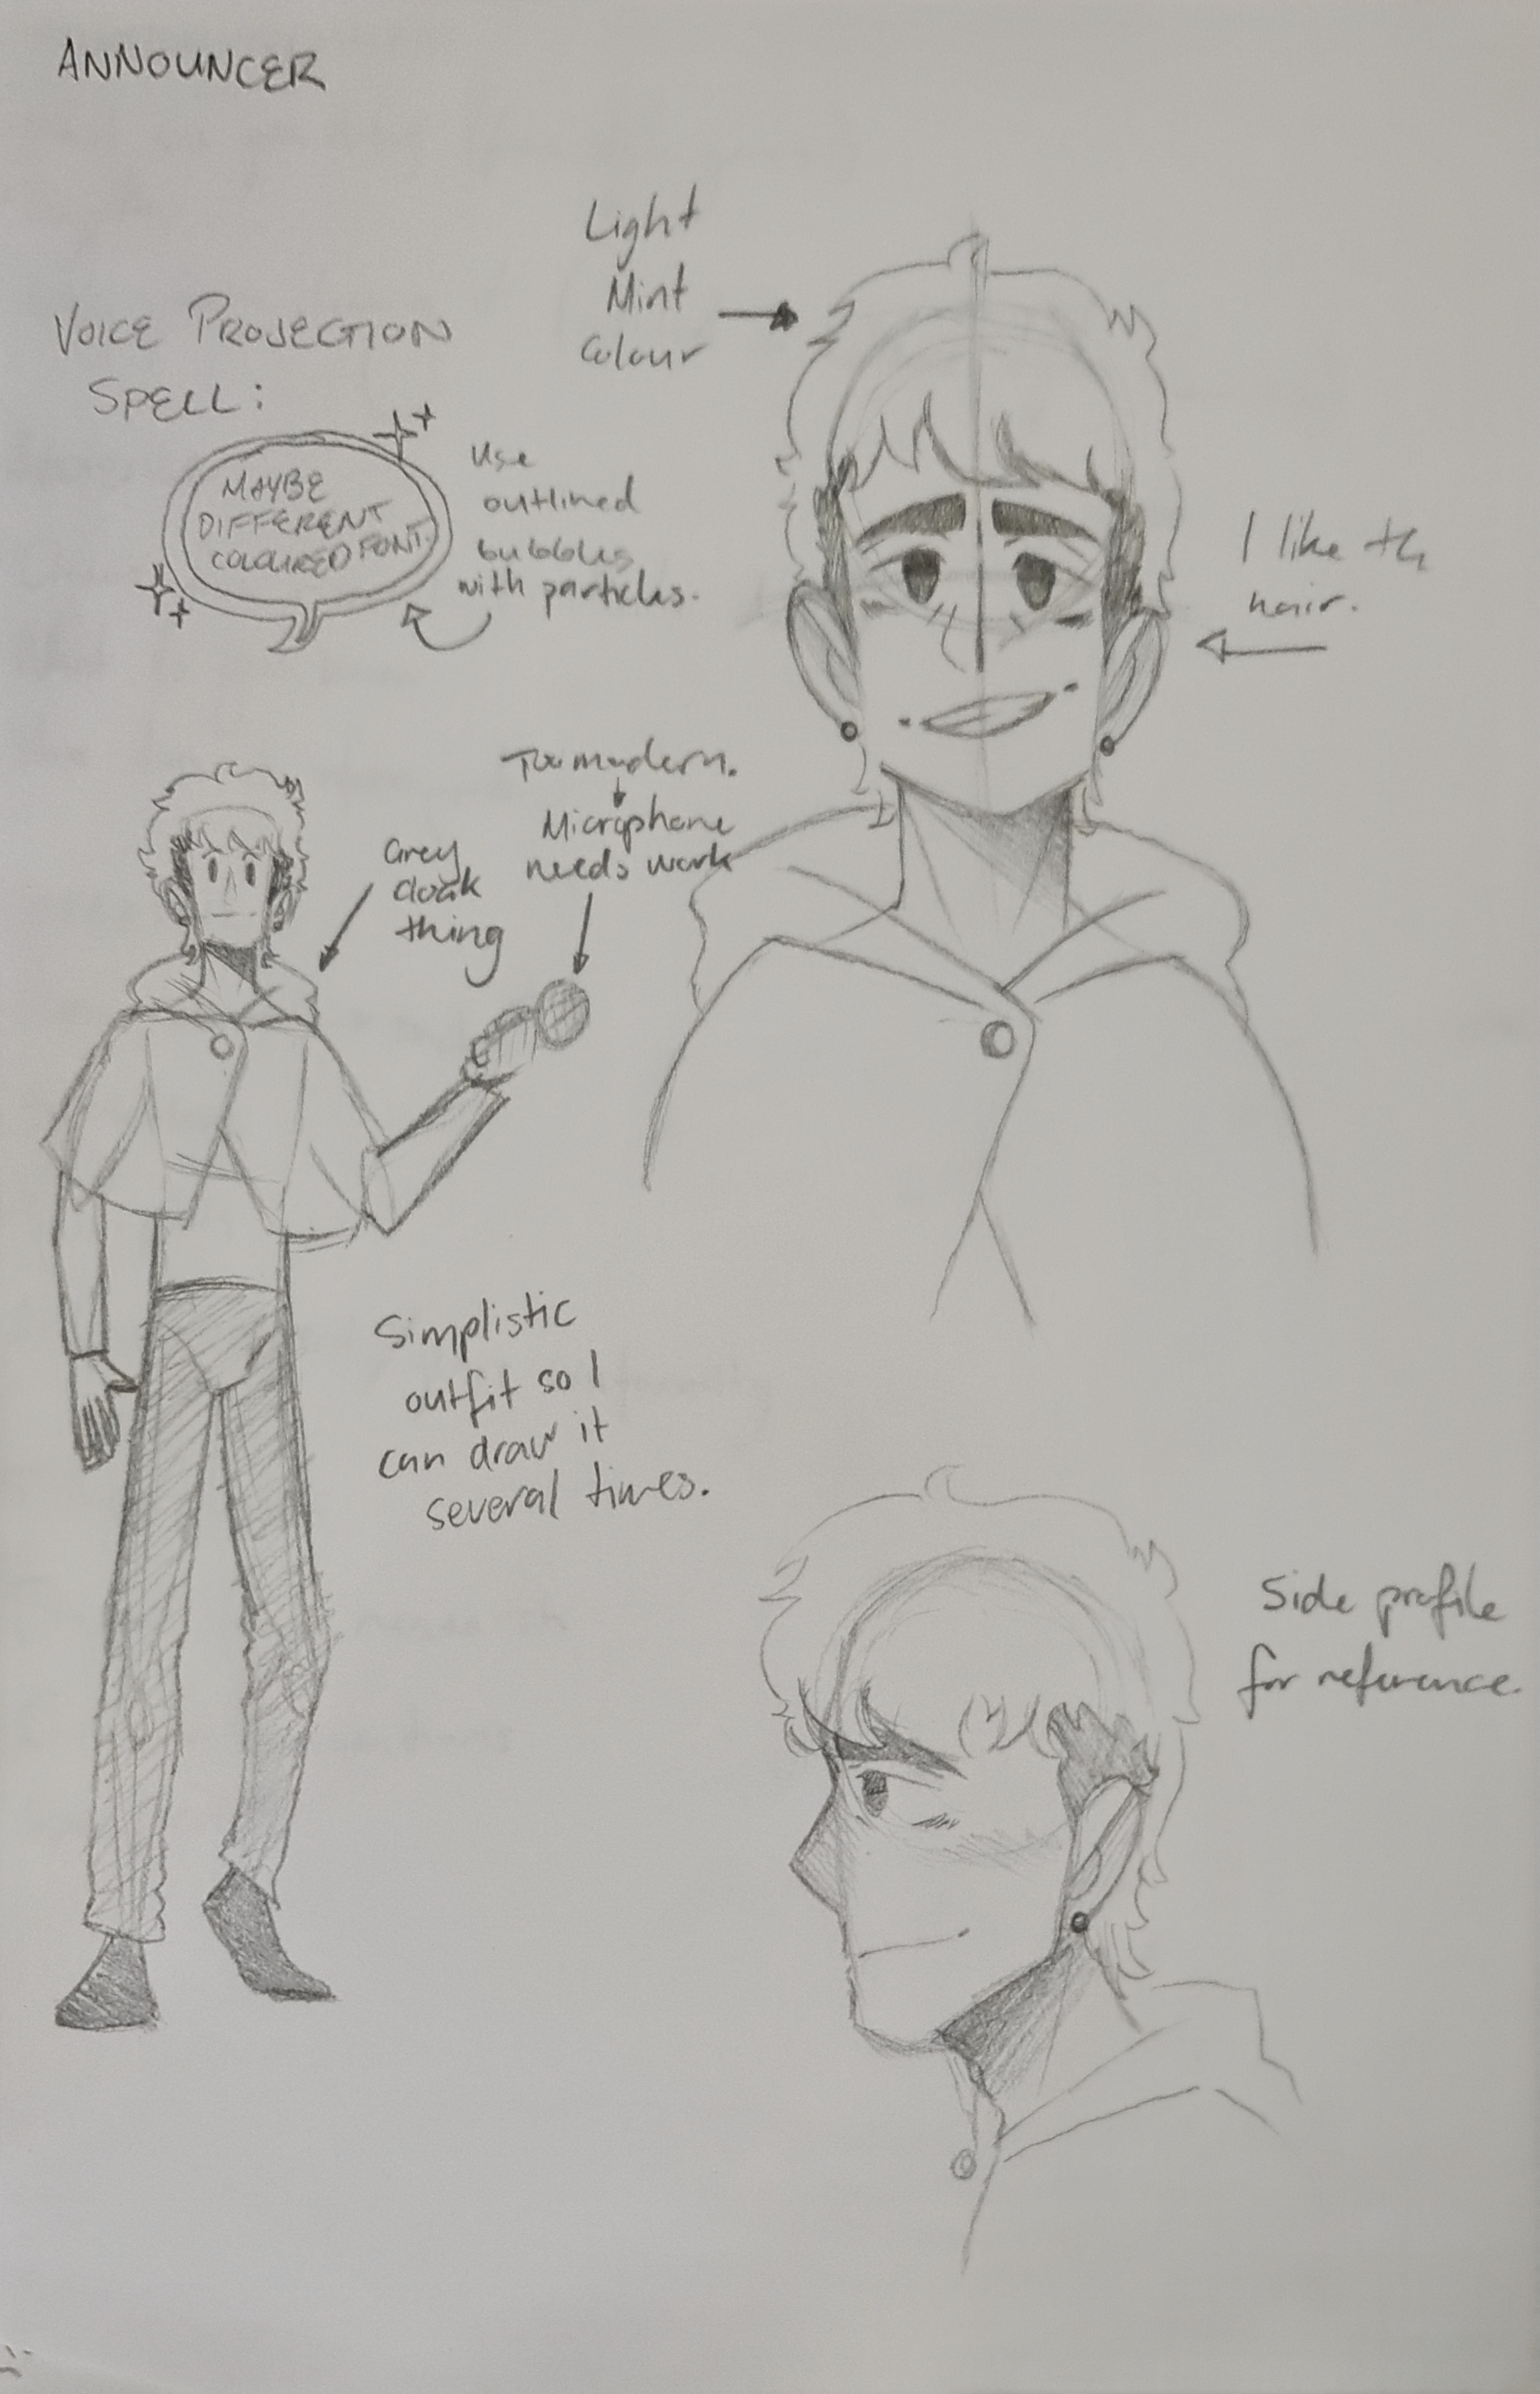 ANNOUNCER
Light
Mint
Colour
VOICE PROJECTION
SPELL:
MAYBE
DIFFERENT
COLOURED FONT.
Use
outlined
bubbles
with particles.
I like th
hair.
Too modern.
Microphone
needs work
Grey
cloak
thing
Simplistic
outfit so I
can draw it
several times.
Side profile
for reference